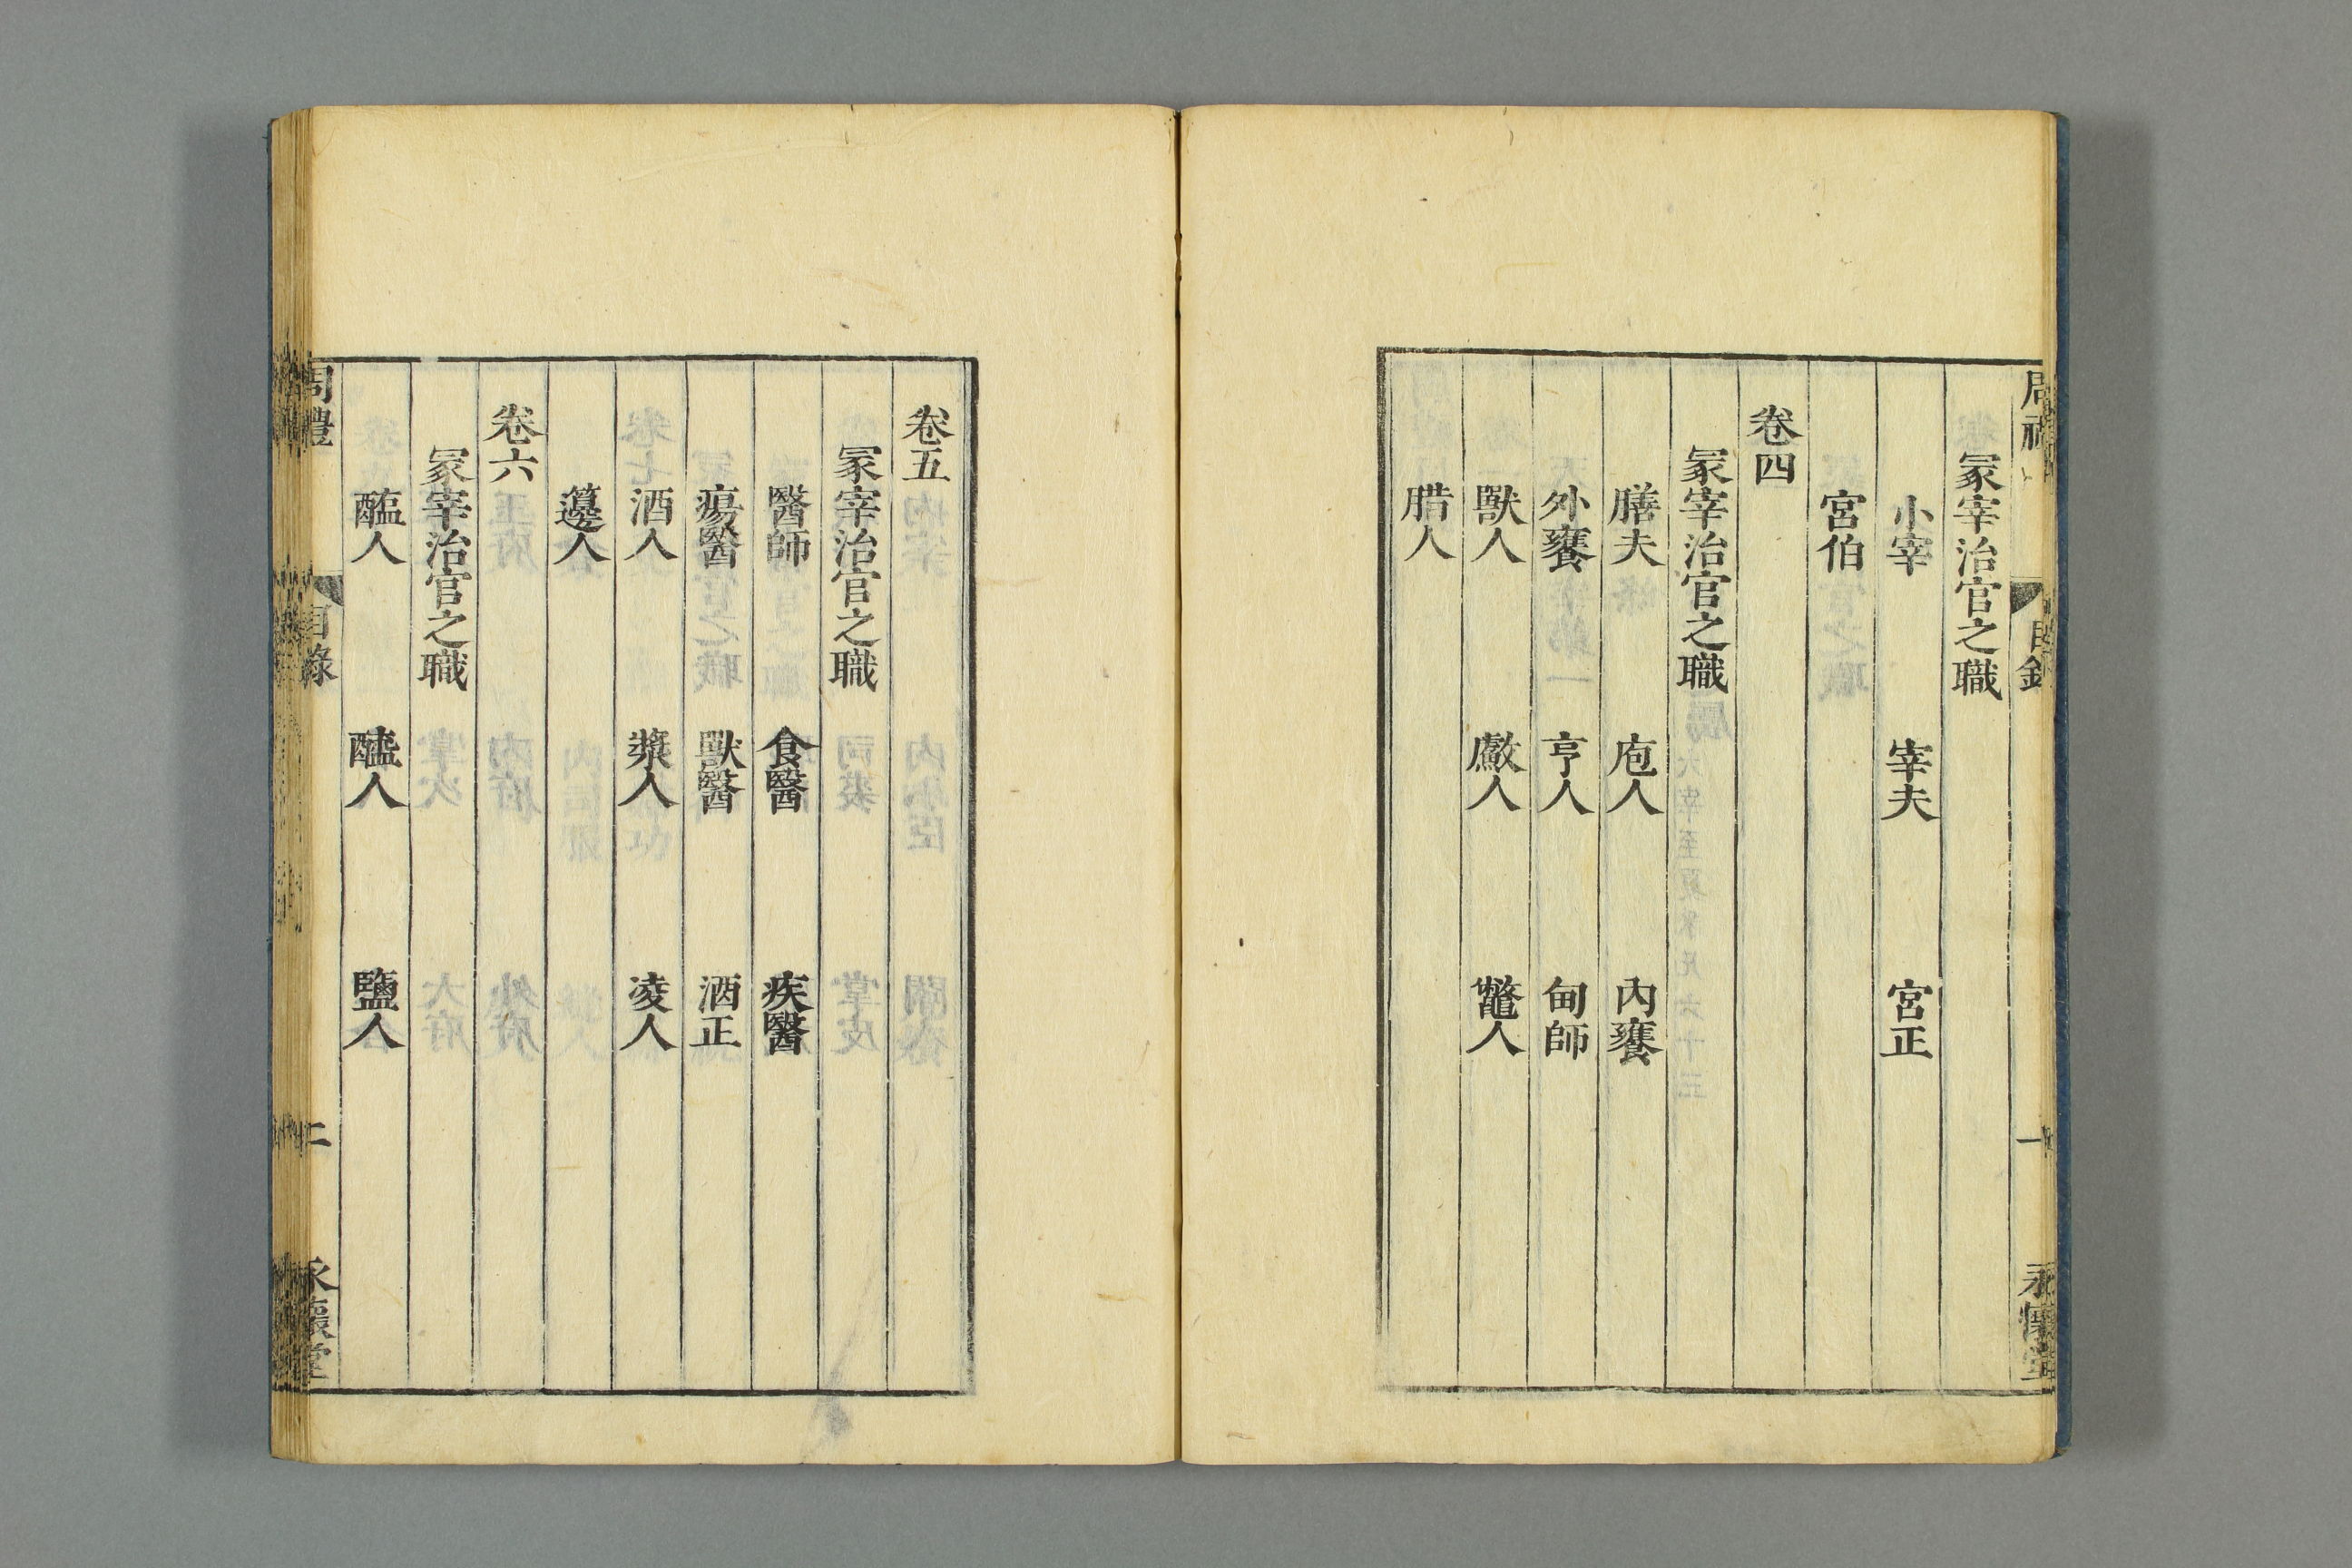 周禮 目錄 一 永懷堂
冡宰治官之職
小宰 宰夫 宮正
宮伯
卷四
冡宰治官之職
膳夫 庖人 內饔
外饔 亨人 甸師
獸人 䱷人 鼈人
腊人
卷五
冡宰治官之職
醫師 食醫 疾醫
瘍醫 獸醫 酒正
酒人 漿人 凌人
籩人
卷六
冡宰治官之職
醢人 醯人 鹽人
周禮 目錄 二 永懷堂